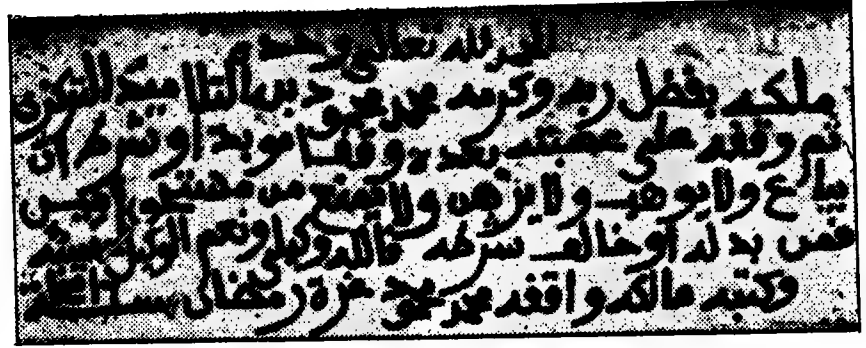 الحمد لله تعالى وحده
ملكه بفضل ربه وكرمه محمد محمود بن التلاميد التركزي
ثم وقفه على عصبته بعده وقفا مؤبدا وشرط ان
يباع ولا يوهب ولا يرهن ولا يمنع من مستحق
فمن بدله او خالف شرطه فالله وكيلي ونعم الوكيل
وكتبه مالكه واقفه محمد محمود غرة رمضان سنة